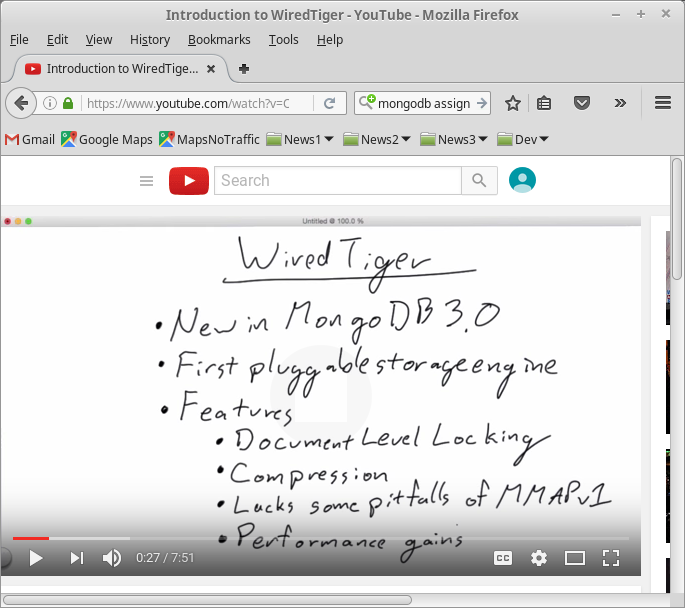 Introduction to WiredTiger - YouTube - Mozilla Firefox
File Edit View History Bookmarks Tools Help
Introduction to WiredTige...
https://www.youtube.com/watch?v=C
mongodb assign
Gmail Google Maps MapsNoTraffic News1 News2 News3 Dev
Search
Untitled @ 100.0 %
WiredTiger
• New in MongoDB 3.0
• First pluggable storage engine
• Features
• Document Level Locking
• Compression
• Lacks some pitfalls of MMAPv1
• Performance gains
0:27 / 7:51
CC